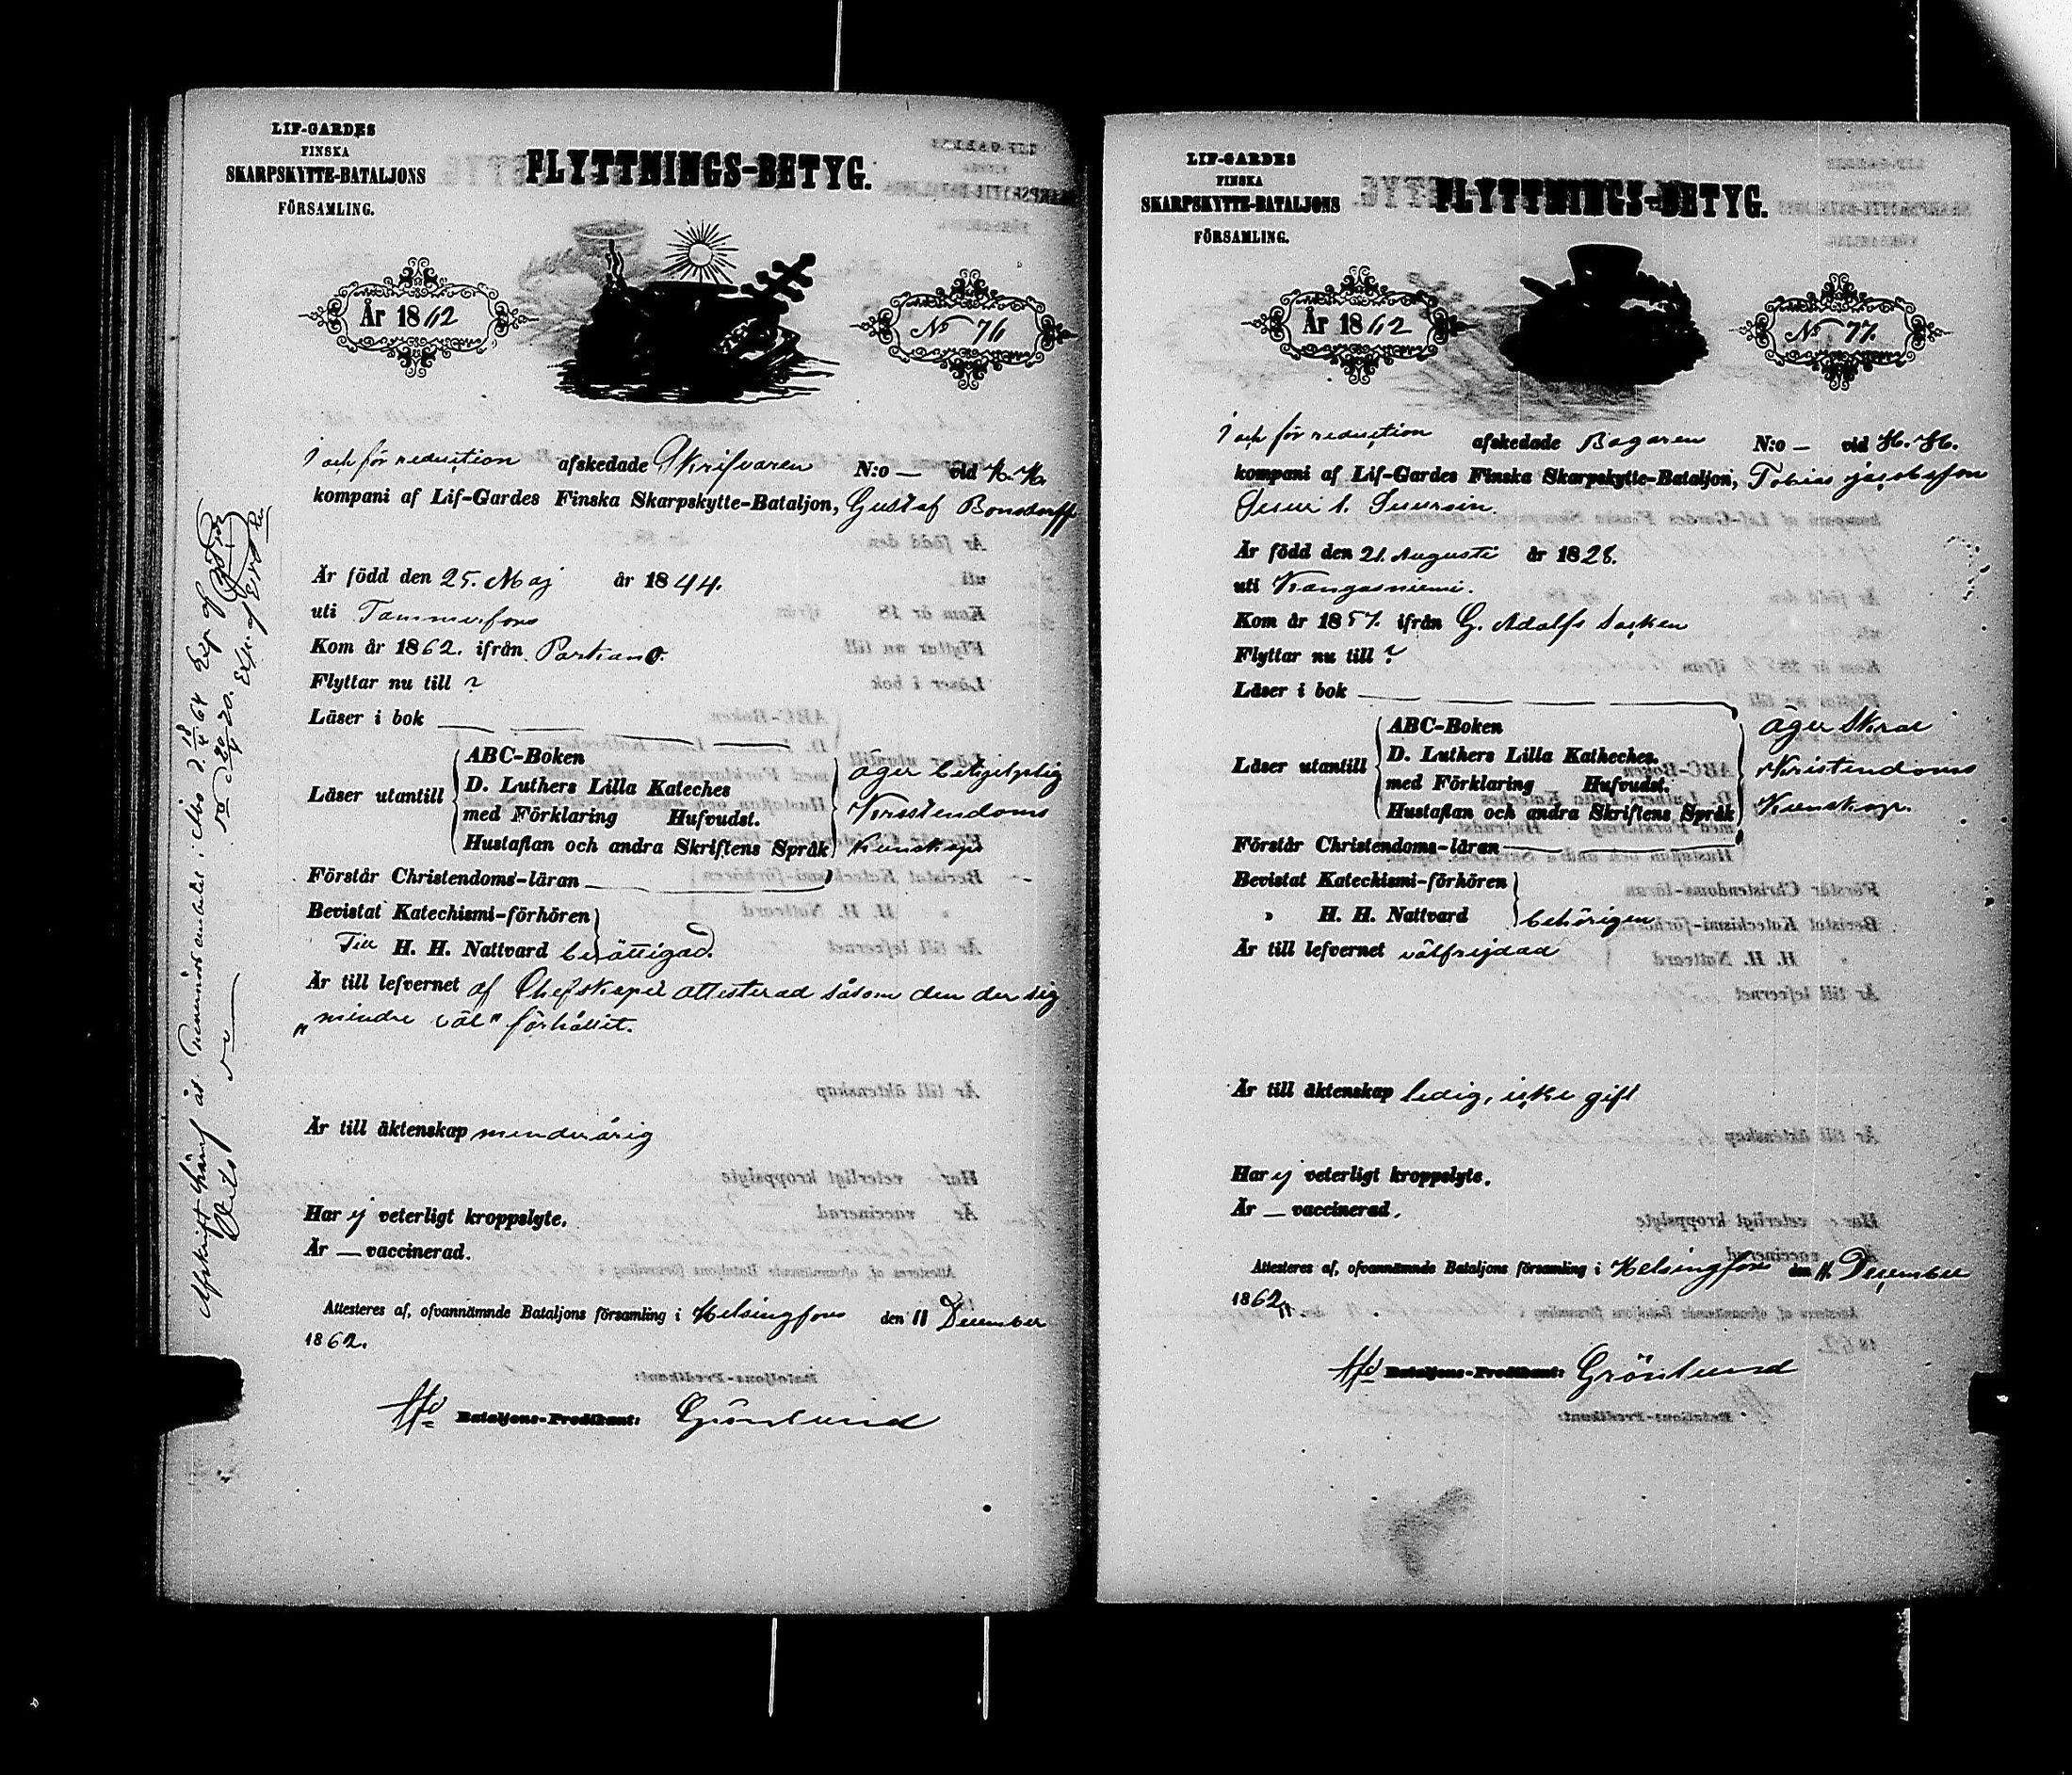 LIF-GARDES
FINSKA
SKARPSKYTTE-BATALJONS
FÖRSAMLING.
FLYTTNINGS-BETYG.
År 1862
No 76
I och för reduction afskedade Skrifvaren N:o — vid H. H.
kompani af Lif-Gardes Finska Skarpskytte-Bataljon, Gustaf Bonsdorff
Är född den 25. Maj år 1844.
uti Tammerfors
Kom år 1862. ifrån Parkano.
Flyttar nu till ?
Läser i bok
Läser utantill
ABC-Boken
D. Luthers Lilla Kateches
med Förklaring Hufvudst.
Hustaflan och andra Skriftens Språk
äger
Kristendoms
kunskap
Förstår Christendoms-läran
Bevistat Katechismi-förhören
Till H. H. Nattvard berättigad.
Är till lefvernet af Chefskapet attesterad såsom den der sig
"mindre väl" förhållit.
Är till äktenskap minderårig
Har ej veterligt kroppslyte.
Är — vaccinerad.
Attesteres af, ofvannämnde Bataljons församling i Helsingfors den 11 December
1862.
Bataljons-Predikant: Grönlund
Afskrift häraf åt
LIF-GARDES
FINSKA
SKARPSKYTTE-BATALJONS
FÖRSAMLING.
FLYTTNINGS-BETYG.
År 1862
No 77.
I och för reduction afskedade Bagaren N:o — vid H. H.
kompani af Lif-Gardes Finska Skarpskytte-Bataljon, Tobias Jacobsson
Är född den 21. Augusti år 1828.
uti Kangasniemi.
Kom år 1857. ifrån G. Adolfs Socken
Flyttar nu till ?
Läser i bok
Läser utantill
ABC-Boken
D. Luthers Lilla Katheches.
med Förklaring Hufvudst.
Hustaflan och andra Skriftens Språk
äger
Kristendoms
Kunskap.
Förstår Christendoms-läran
Bevistat Katechismi-förhören
" H. H. Nattvard behörigen
Är till lefvernet välfrejdad
Är till äktenskap ledig, icke gift
Har ej veterligt kroppslyte.
Är — vaccinerad.
Attesteres af, ofvannämnde Bataljons församling i Helsingfors den 11. December
1862.
Bataljons-Predikant: Grönlund